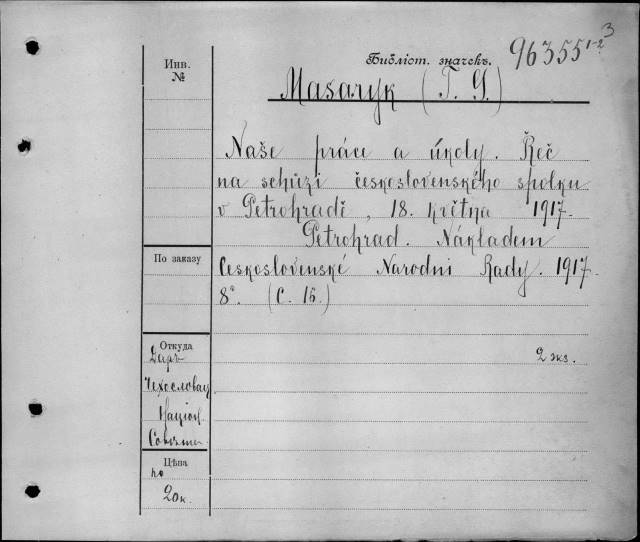 Библіот. значекъ. 96355 1-2 3
Инв.
№
Masaryk (T. G.)
Naše práce a úkoly. Řeč
na schůzi československého spolku
v Petrohradě, 18. května 1917.
Petrohrad. Nákladem
По заказу
Československé Narodni Rady. 1917.
8°. (С. 16.)
Откуда
Даръ
2 экз.
Чехословац
Націон.
Цѣна
по
20 к.